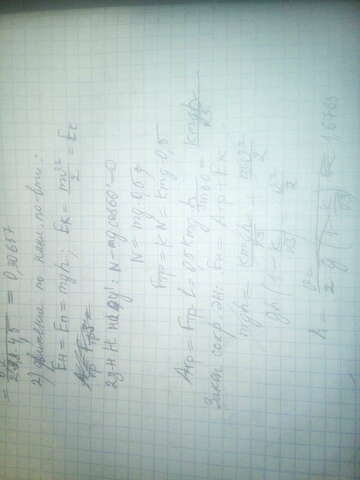 = 2·9,8·4,5 = 0,20637
2) движение по накл. пов-сти:
Eн = Eп = mgh; Eк = mϑ²/2 = Eк
2з-н Н. на оу: N - mg cos60° = 0
N = mg·0,5
Fтр = kN = kmg·0,5
Aтр = Fтр·l = 0,5kmg·h/sin60 = kmgh/√3
Закон сохр. эн: Eп = Aтр + Eк
mgh = kmgh/√3 + mϑ²/2
gh(1 - k/√3) = ϑ²/2
h = ϑ²/2g(1 - k/√3)